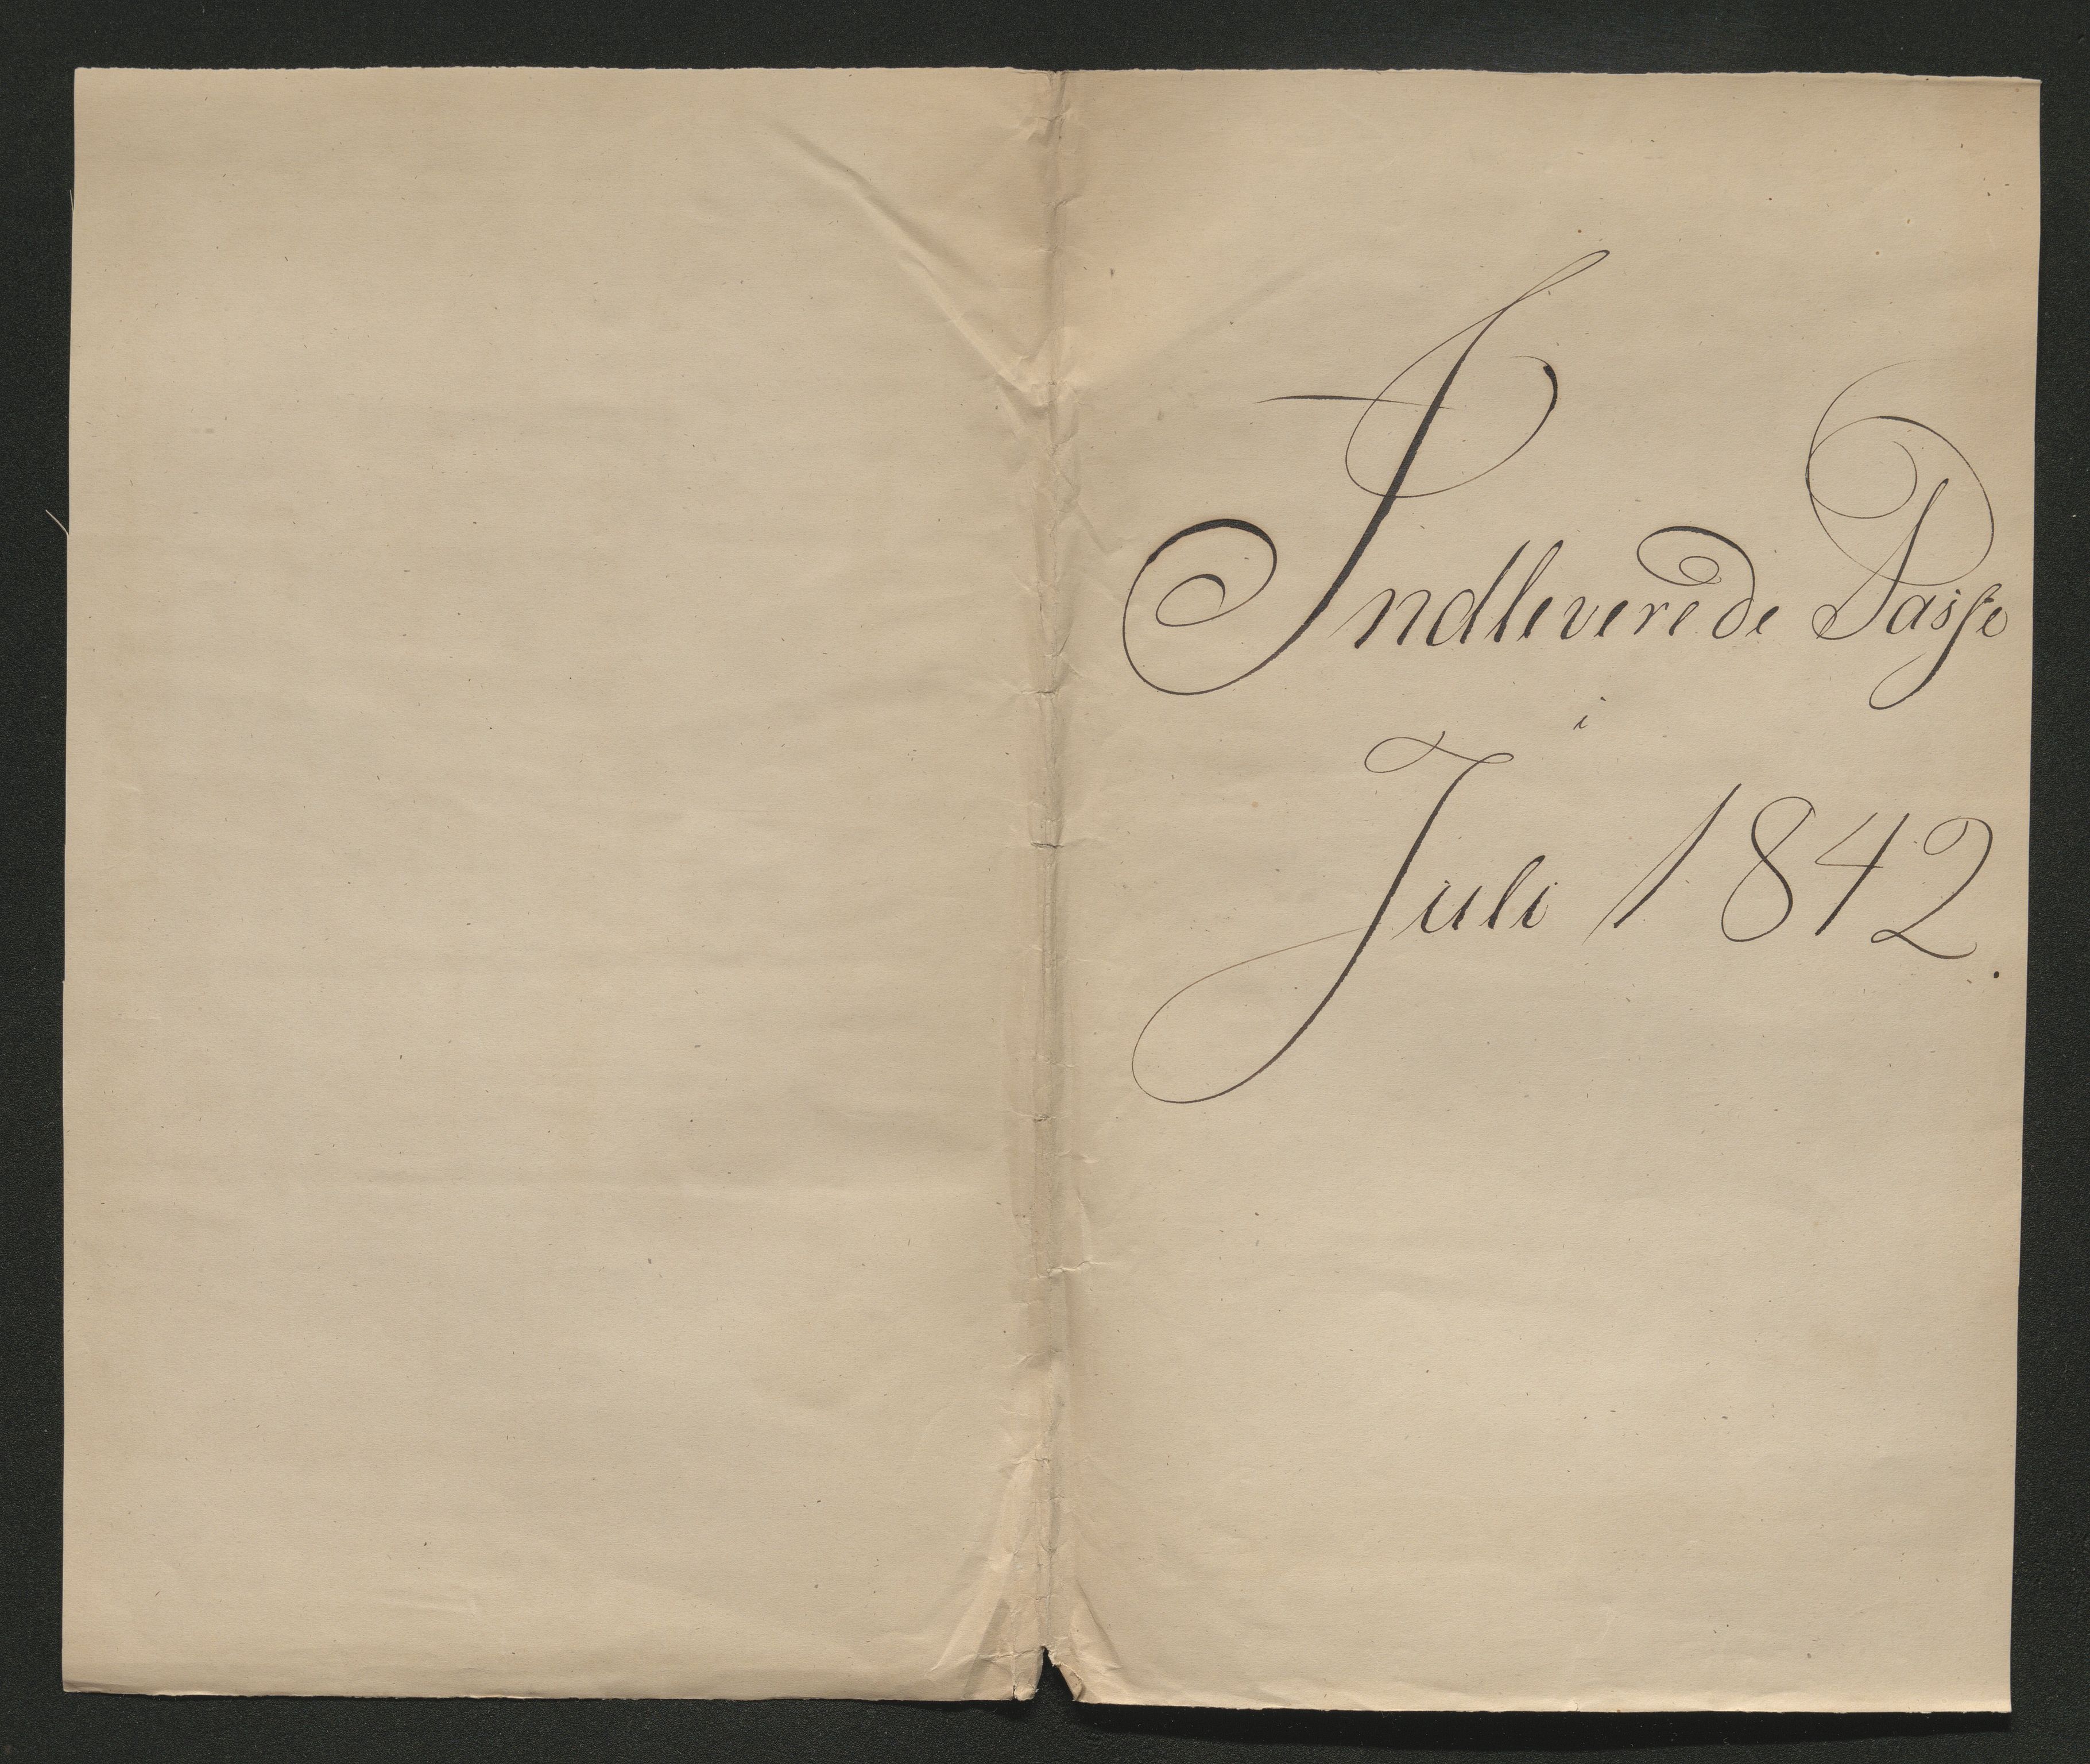 Indleverede Passe
i
Juli 1842.